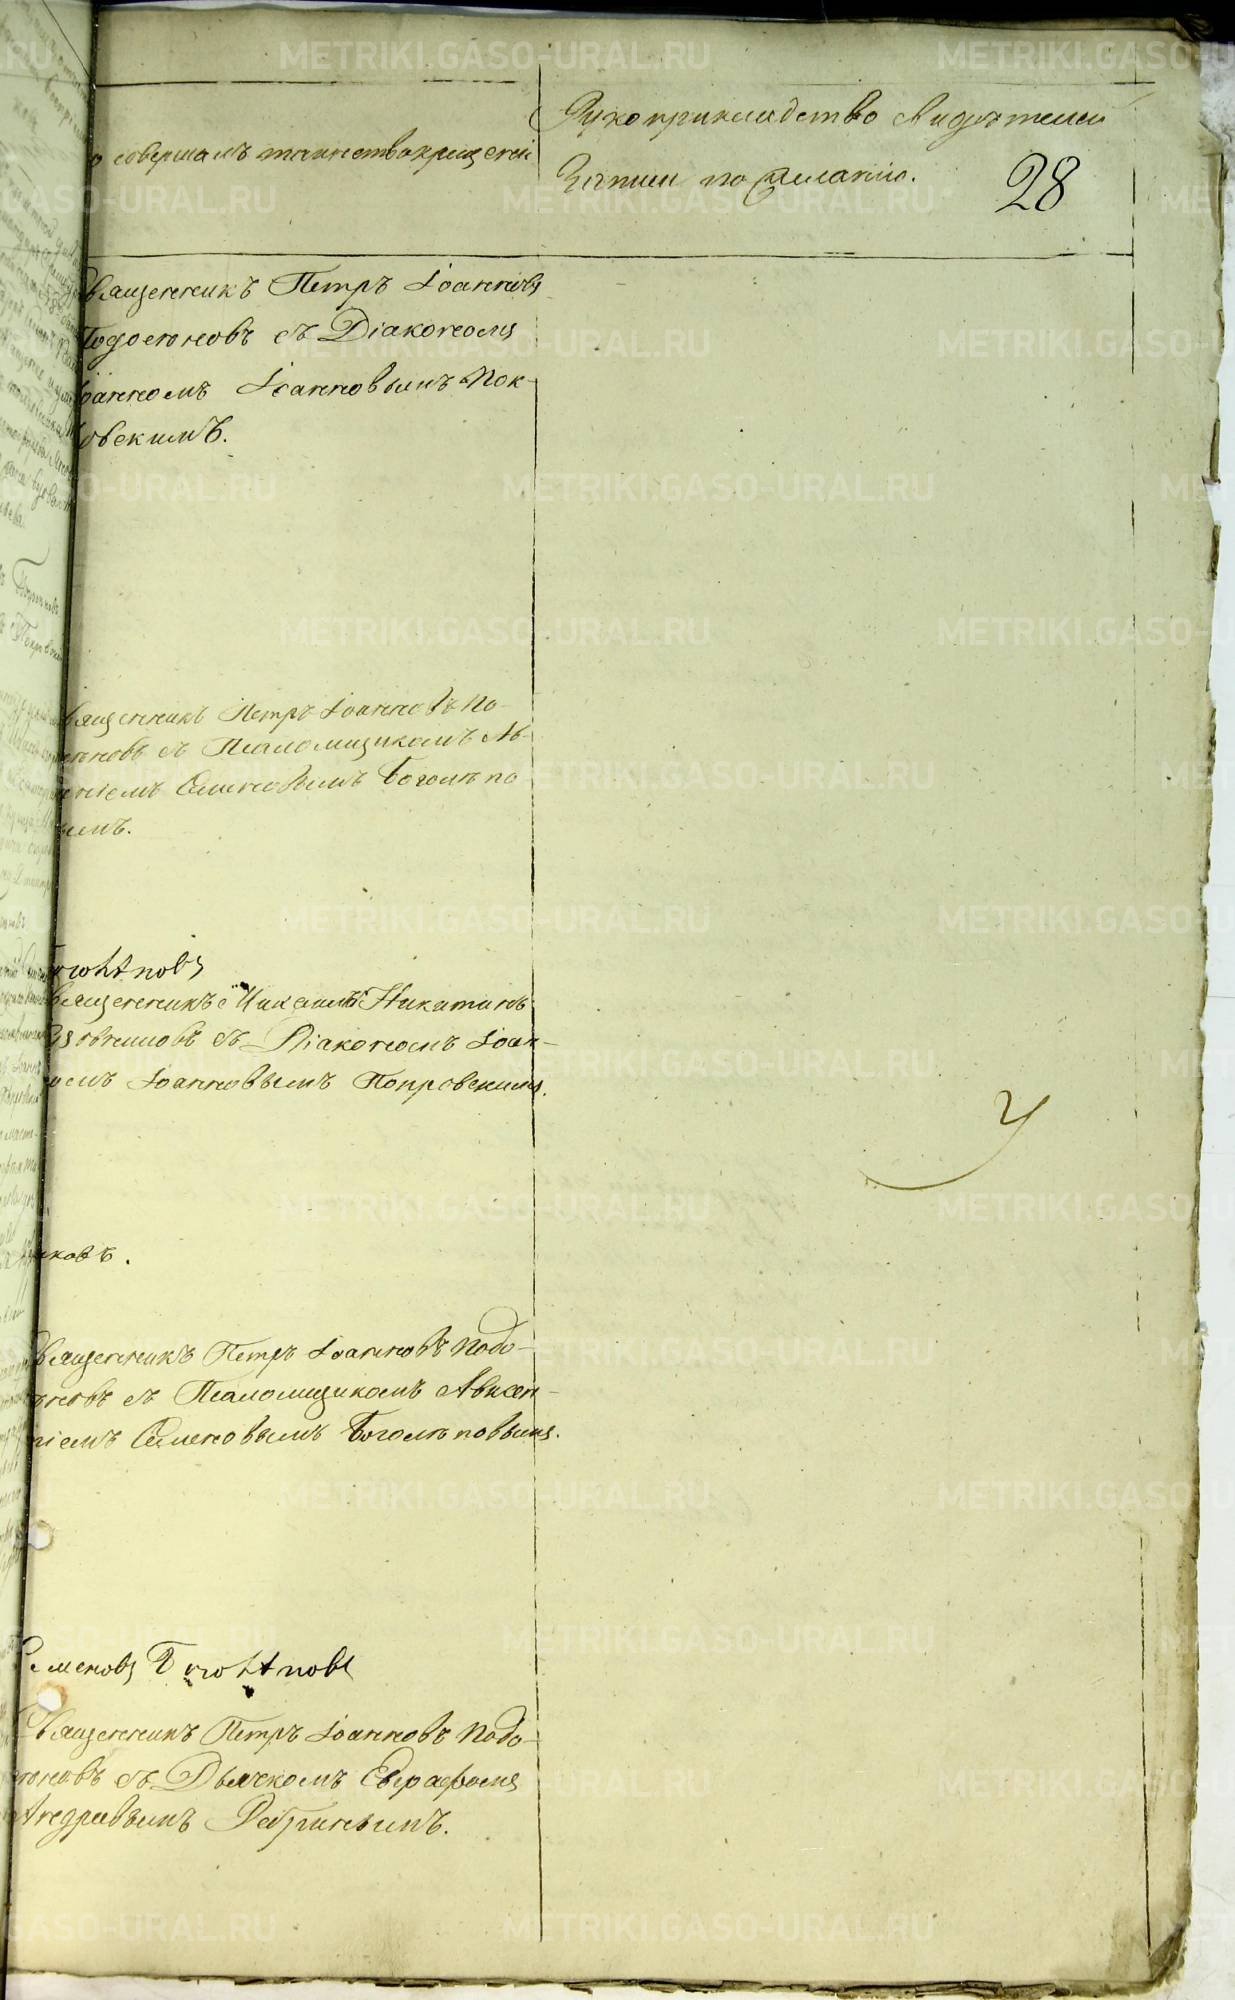 о совершалъ таинство крещенія
Рукоприкладство свидѣтелей
записи по желанію.
28
Священникъ Петръ Іоанновъ
Подосеновъ съ Діакономъ
Іоанномъ Іоанновымъ Пок-
ровскимъ.
вященникъ Петръ Іоанновъ По-
еновъ съ Псаломщикомъ Ав-
ентіемъ Семеновымъ Боголѣпо
вымъ.
оголѣповъ
вященникъ Никитинъ
съ Діакономъ Іоан-
номъ Іоанновымъ Покровскимъ.
иковъ.
вященникъ Петръ Іоанновъ Подо-
еновъ съ Псаломщикомъ Авксен-
тіемъ Семеновымъ Боголѣповымъ.
Семеновъ Боголѣповъ
Священникъ Петръ Іоанновъ Подо-
сеновъ съ Дьячкомъ Евграфомъ
Андреевымъ
METRIKI.GASO-URAL.RU